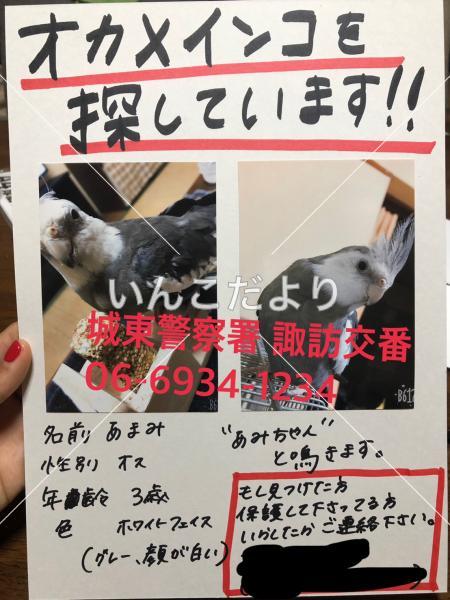 オカメインコを
探しています!!
いんこだより
城東警察署 諏訪交番
06-6934-1234
B612
名前 あまみ
性別 オス
年齢 3歳
色 ホワイトフェイス
(グレー、顔が白い)
"あみちゃん"
と鳴きます。
もし見つけた方
保護して下さってる方
いらしたら ご連絡下さい。